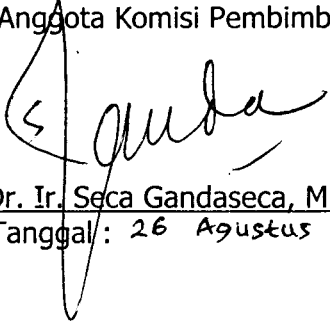 Anggota Komisi Pembimb
Ganda
Dr. Ir. Seca Gandaseca, M
Tanggal : 26 Agustus